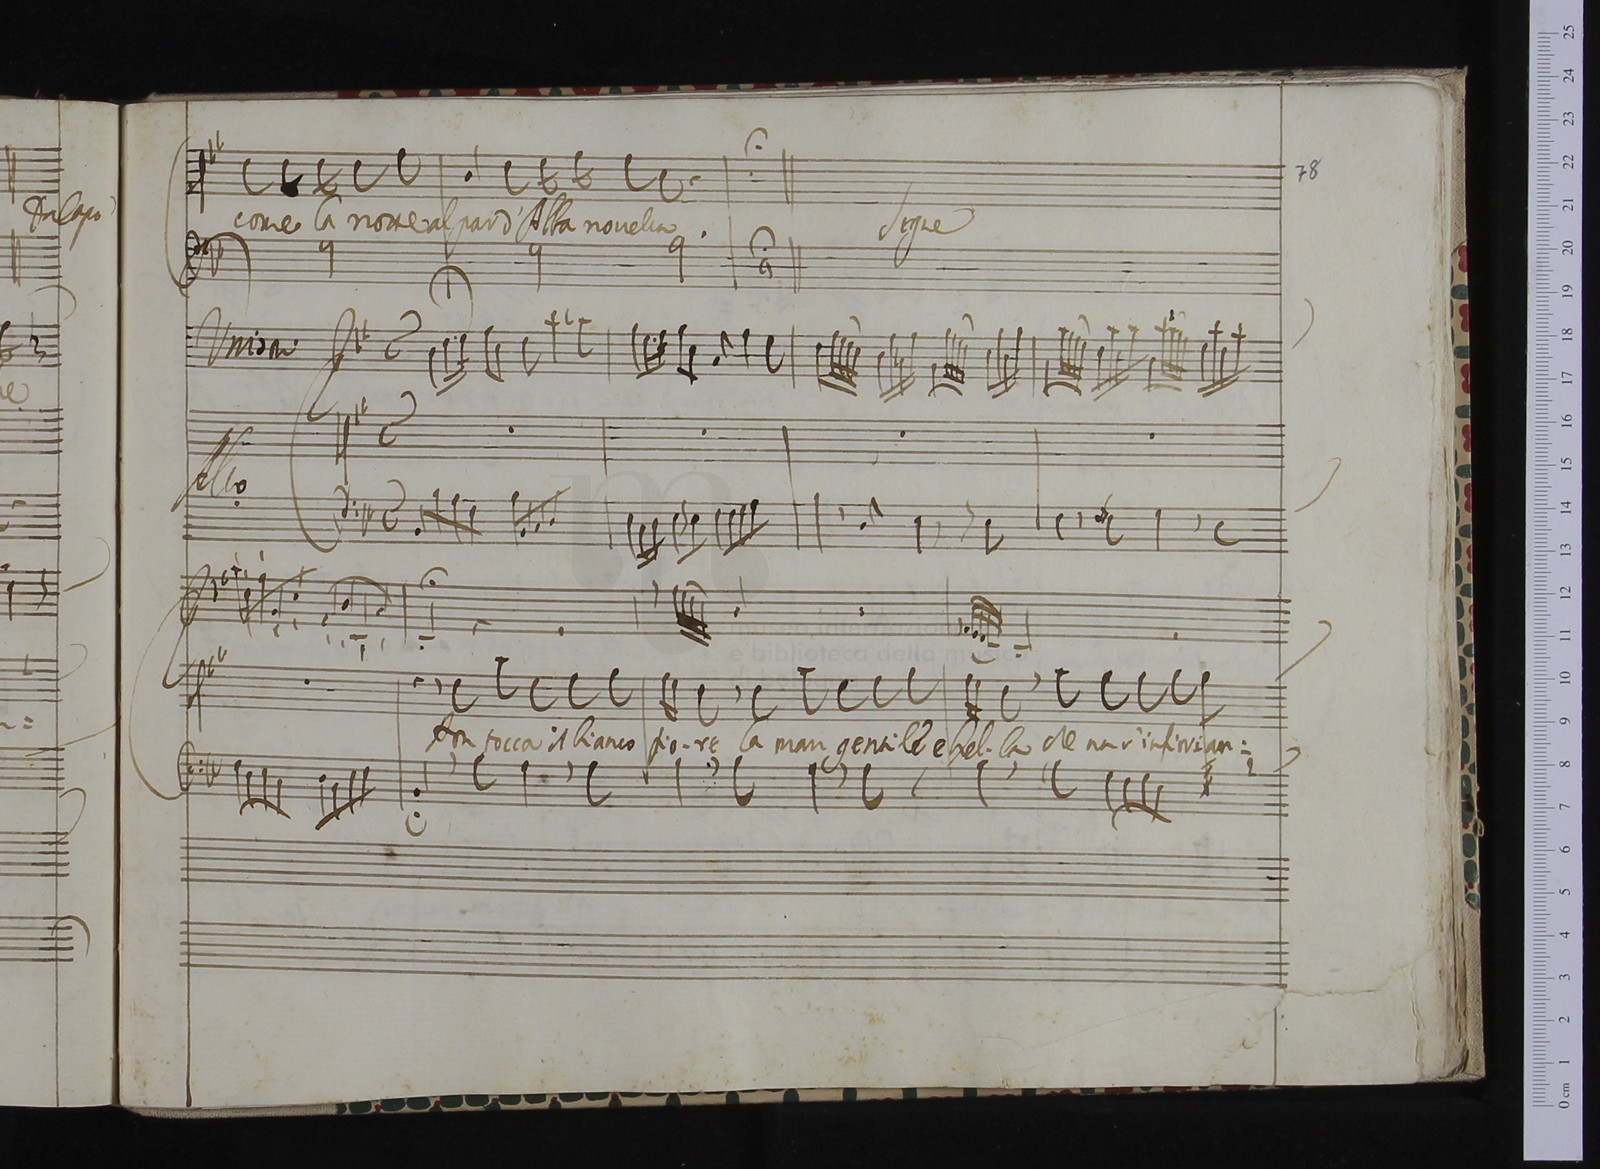 78
Da Capo
come la notte al par d'Alba novella.
Segue
Unison
All:o
Non tocca il bianco fio-re la man gentile e bel-la che
museo internazionale
e biblioteca della musica
25
24
23
22
21
20
19
18
17
16
15
14
13
12
11
10
9
8
7
6
5
4
3
2
1
0 cm